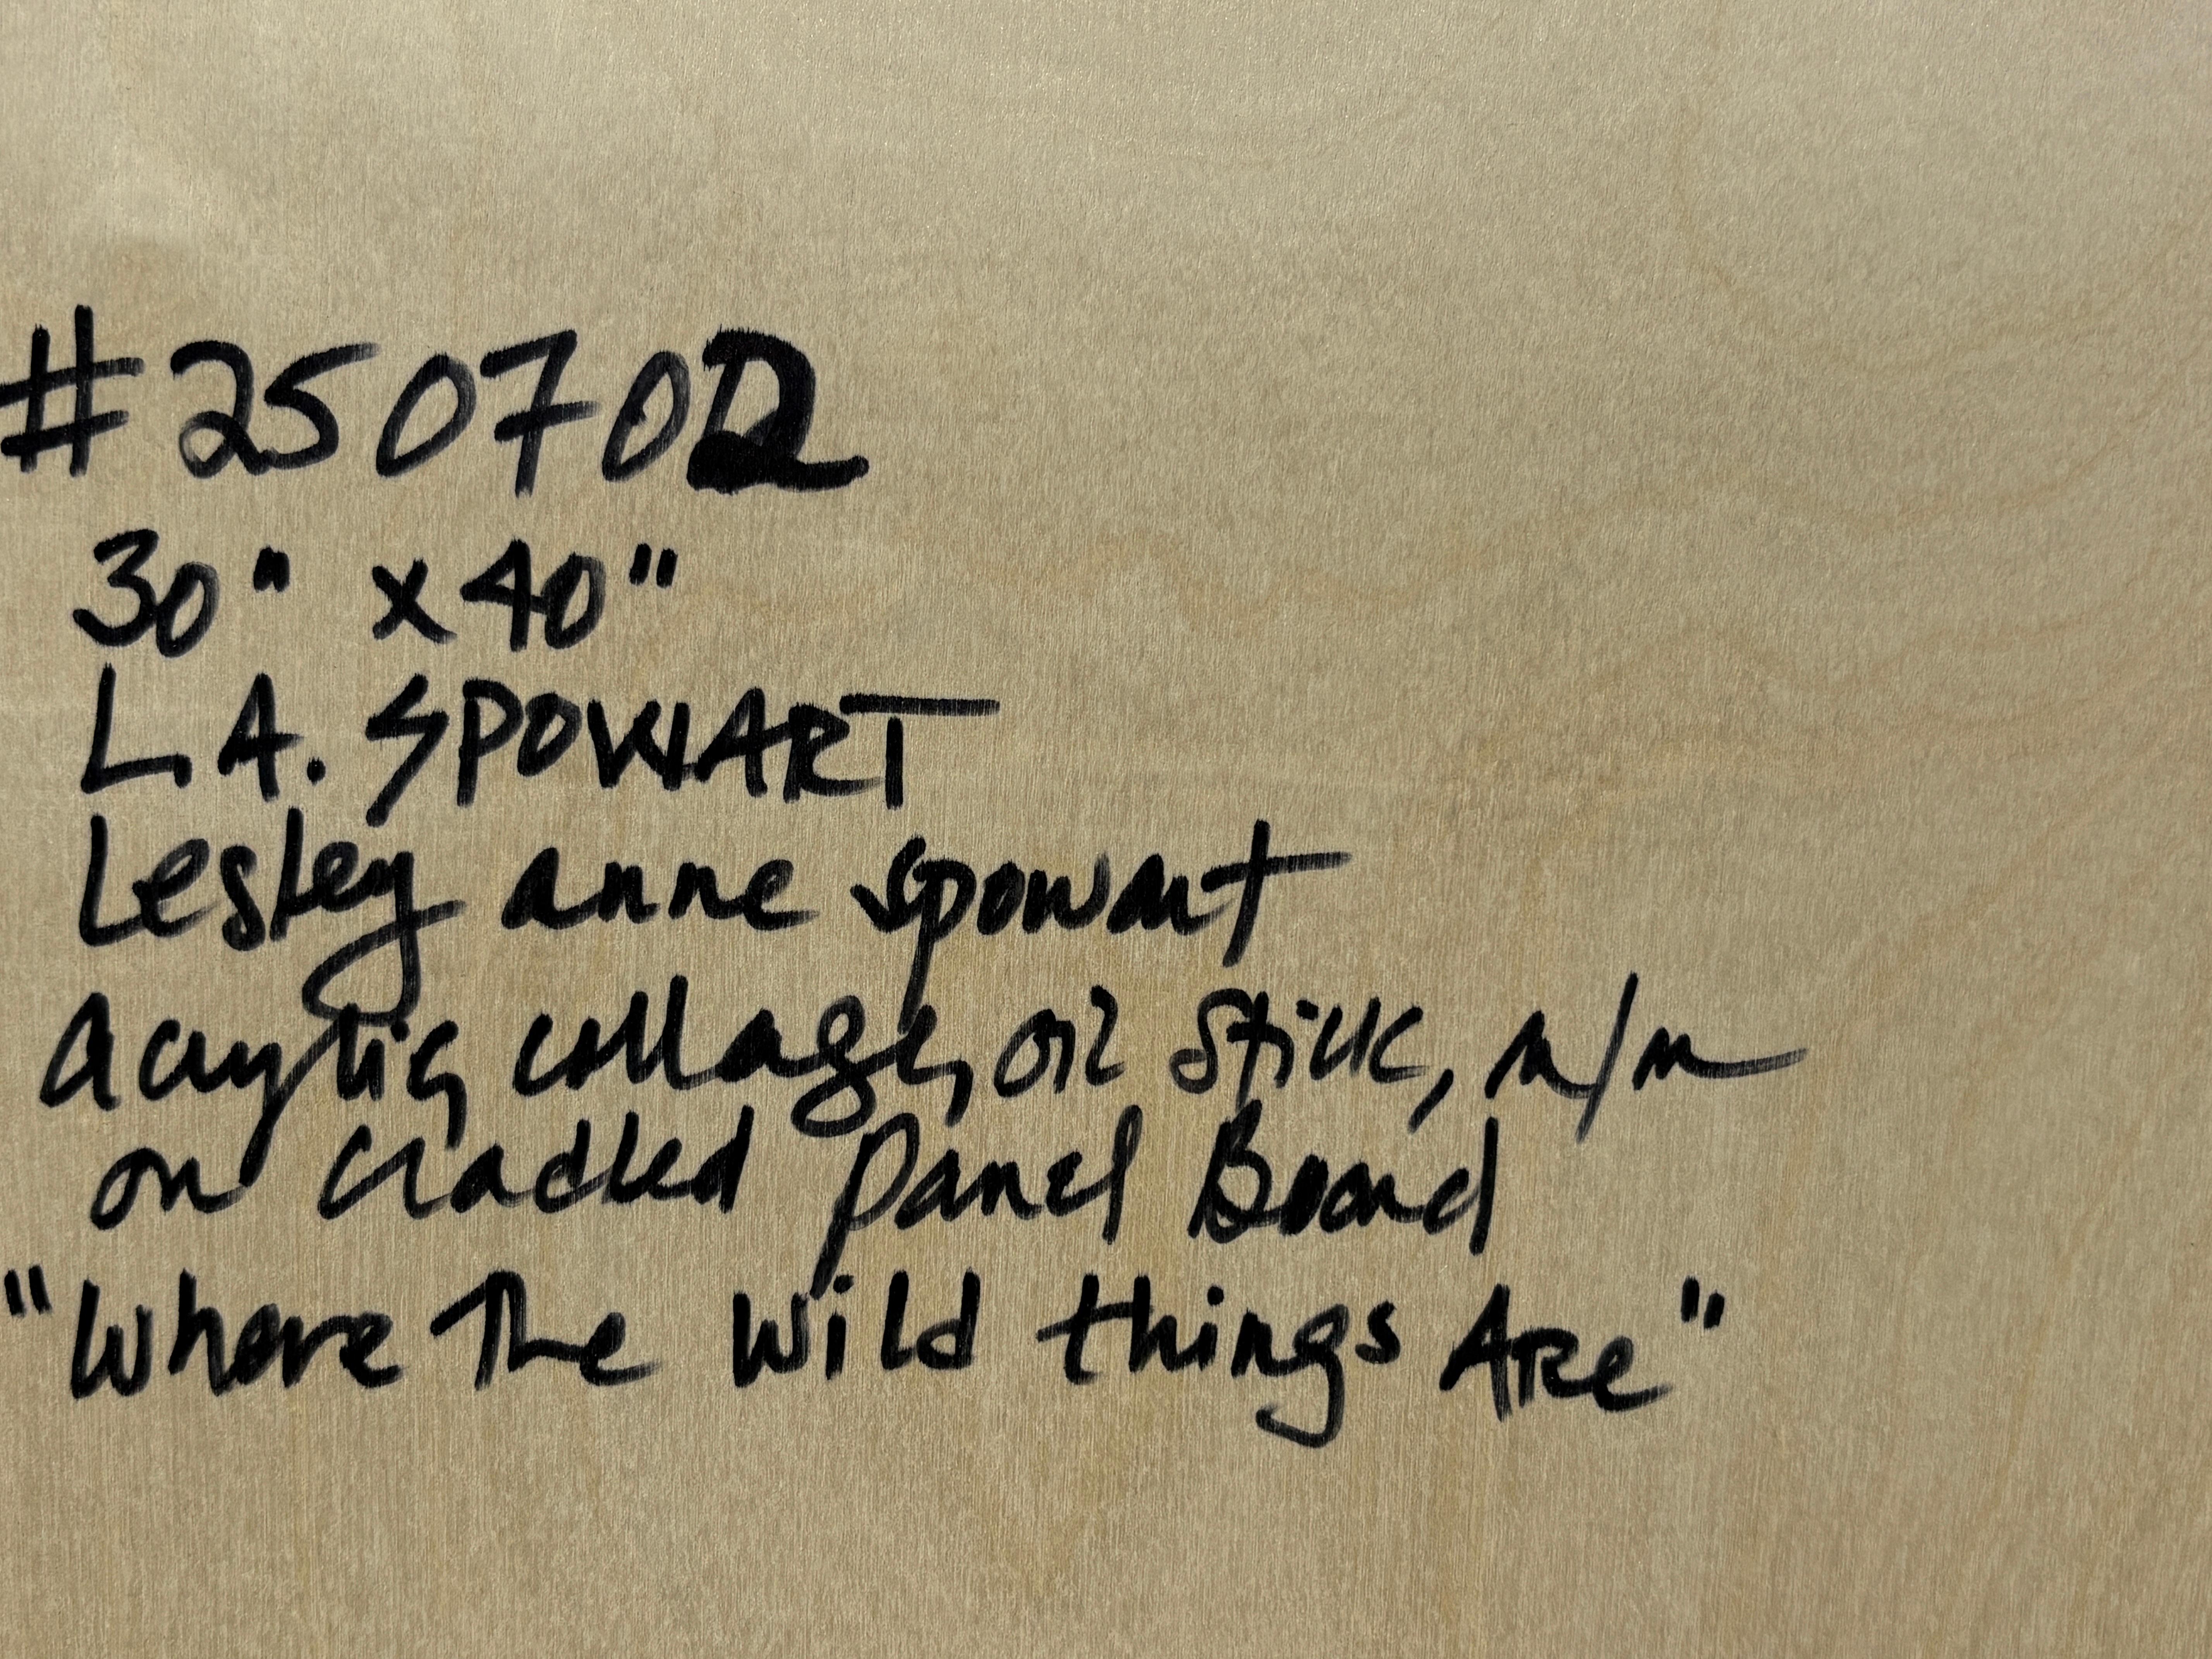 #250702
30" x 40"
L.A. SPOWART
Lesley anne spowart
acrylic, collage, oil stick, m/m
on cradled panel Board
"Where The wild things Are"